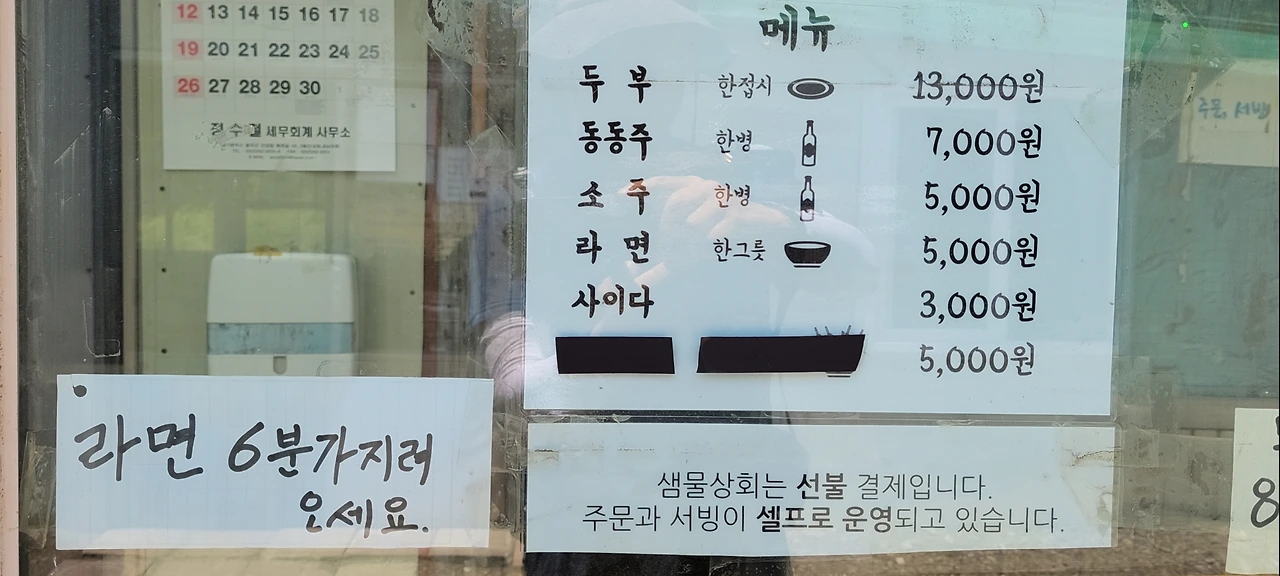 12 13 14 15 16 17 18
19 20 21 22 23 24 25
26 27 28 29 30
세무회계 사무소
메뉴
두 부 한접시 13,000원
동동주 한병 7,000원
소 주 한병 5,000원
라 면 한그릇 5,000원
사이다 3,000원
5,000원
라면 6분가지러
오세요.
샘물상회는 선불 결제입니다.
주문과 서빙이 셀프로 운영되고 있습니다.
주문, 서빙
8